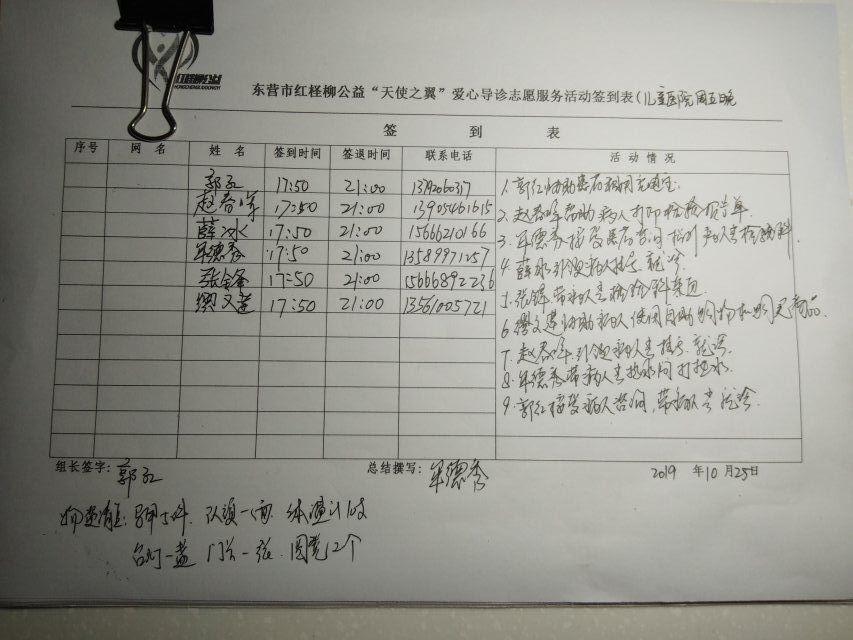 红柽柳公益
HONGCHENGLIUGONGYI
东营市红柽柳公益“天使之翼”爱心导诊志愿服务活动签到表(儿童医院周五晚
签 到 表
序号 网 名 姓 名 签到时间 签退时间 联系电话 活 动 情 况
郭红 17:50 21:00
赵春峰 17:50 21:00 13905461615
薛冰 17:50 21:00 15666210166
军德秀 17:50 21:00 13589971257
张锋 17:50 21:00 15666892236
缪文莲 17:50 21:00 13561005721
1. 郭红协助患者
2. 赵春峰帮助病人打印检验报告单
3. 军德秀接受患者咨询 去检验科.
4. 薛冰引领病人挂号就诊
5. 张锋带病人去检验科采血
6. 协助病人使用自助购物机购买商品.
7. 赵春峰引领病人去挂号.就诊.
8. 军德秀带病人去热水间打热水
9. 郭红接受病人咨询,带病人去就诊.
组长签字: 郭红 总结撰写: 军德秀 2019 年 10 月 25日
物资清点: 马甲 件. 队旗一面. 体温计 支
台灯一盏 一张. 12个